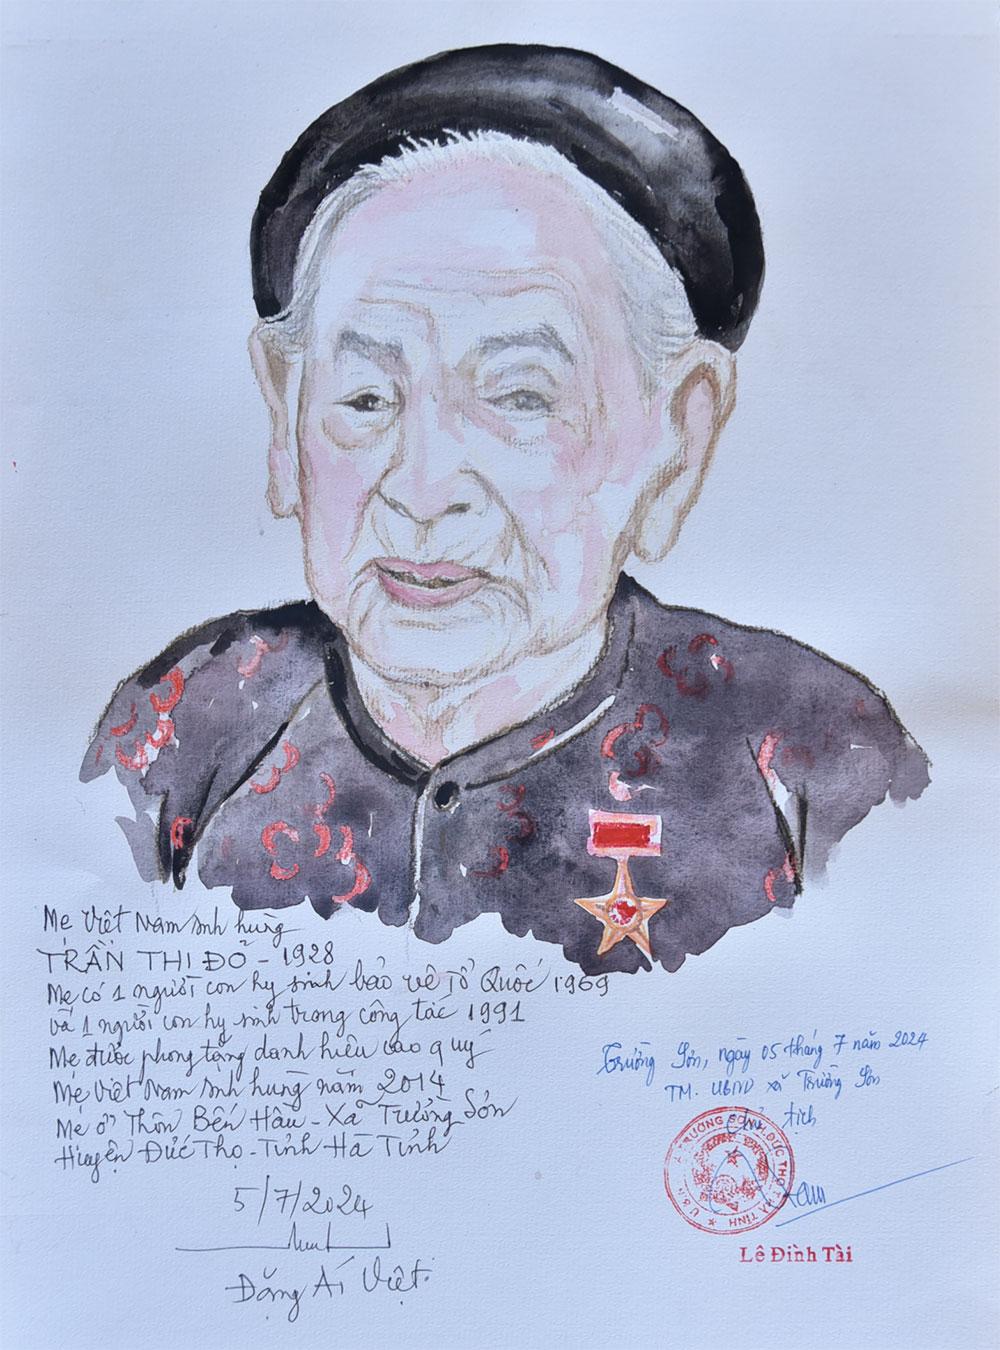 Mẹ Việt Nam anh hùng
TRẦN THỊ ĐỎ - 1928
Mẹ có 1 người con hy sinh bảo vệ Tổ Quốc 1969
và 1 người con hy sinh trong công tác 1991
Mẹ được phong tặng danh hiệu cao quý
Mẹ Việt Nam anh hùng năm 2014
Mẹ ở Thôn Bến Hầu - Xã Trường Sơn
Huyện Đức Thọ - Tỉnh Hà Tĩnh
5/7/2024
Đặng Ái Việt
Trường Sơn, ngày 05 tháng 7 năm 2024
TM. UBND xã Trường Sơn
Chủ tịch
TRƯỜNG SƠN H. ĐỨC THỌ T. HÀ TĨNH
Lê Đình Tài